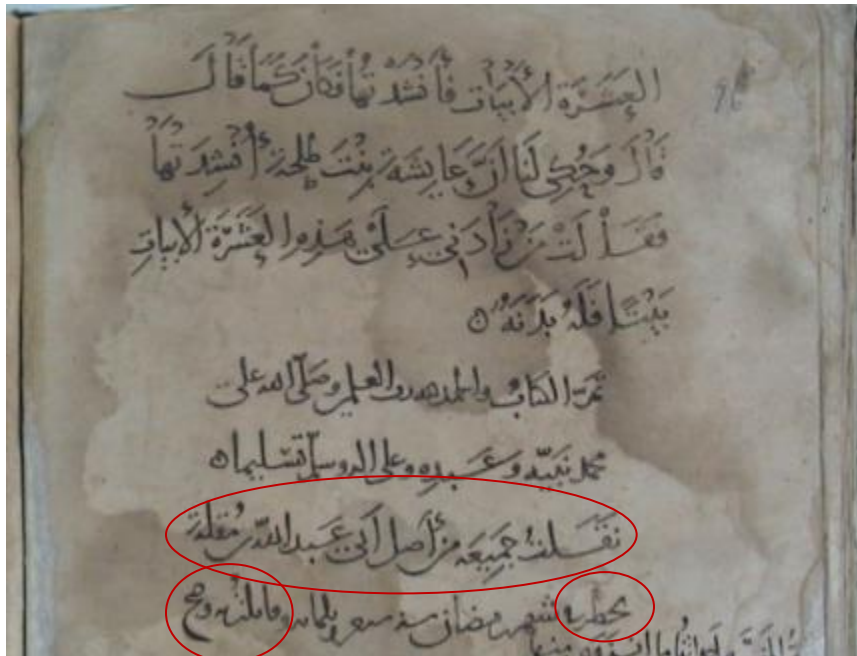 العَشَرَة الأَبيَات فَأَنشَدتُهَا فَكَانَ كَمَا قَالَ
قَالَ وَحُكِيَ لَنَا أَنَّ عَايشَةَ بِنْتَ طَلحَةَ أُنْشِدَتهَا
فَقَالَتْ مَنْ زَادَنِي عَلَى هَذِهِ العَشَرَة الأَبيَاتِ
بَيْتًا فَلَهُ بَدَنَةٌ
تم الكتاب والحمد لله رب العلمين وصلّى الله على
محمد نبيّه وعبده وعلى اله وسلّم تسليما
نقلت جميعه من أصل أبي عبد الله بن مُقلة
بخطه في شهر رمضان سنة وثلثمائة وقابلت به وصح